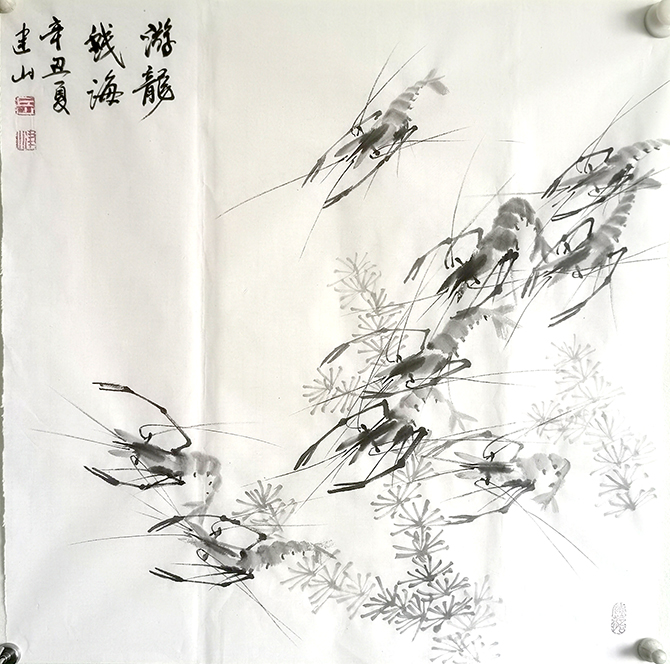 游龍
戲海
辛丑夏
建山